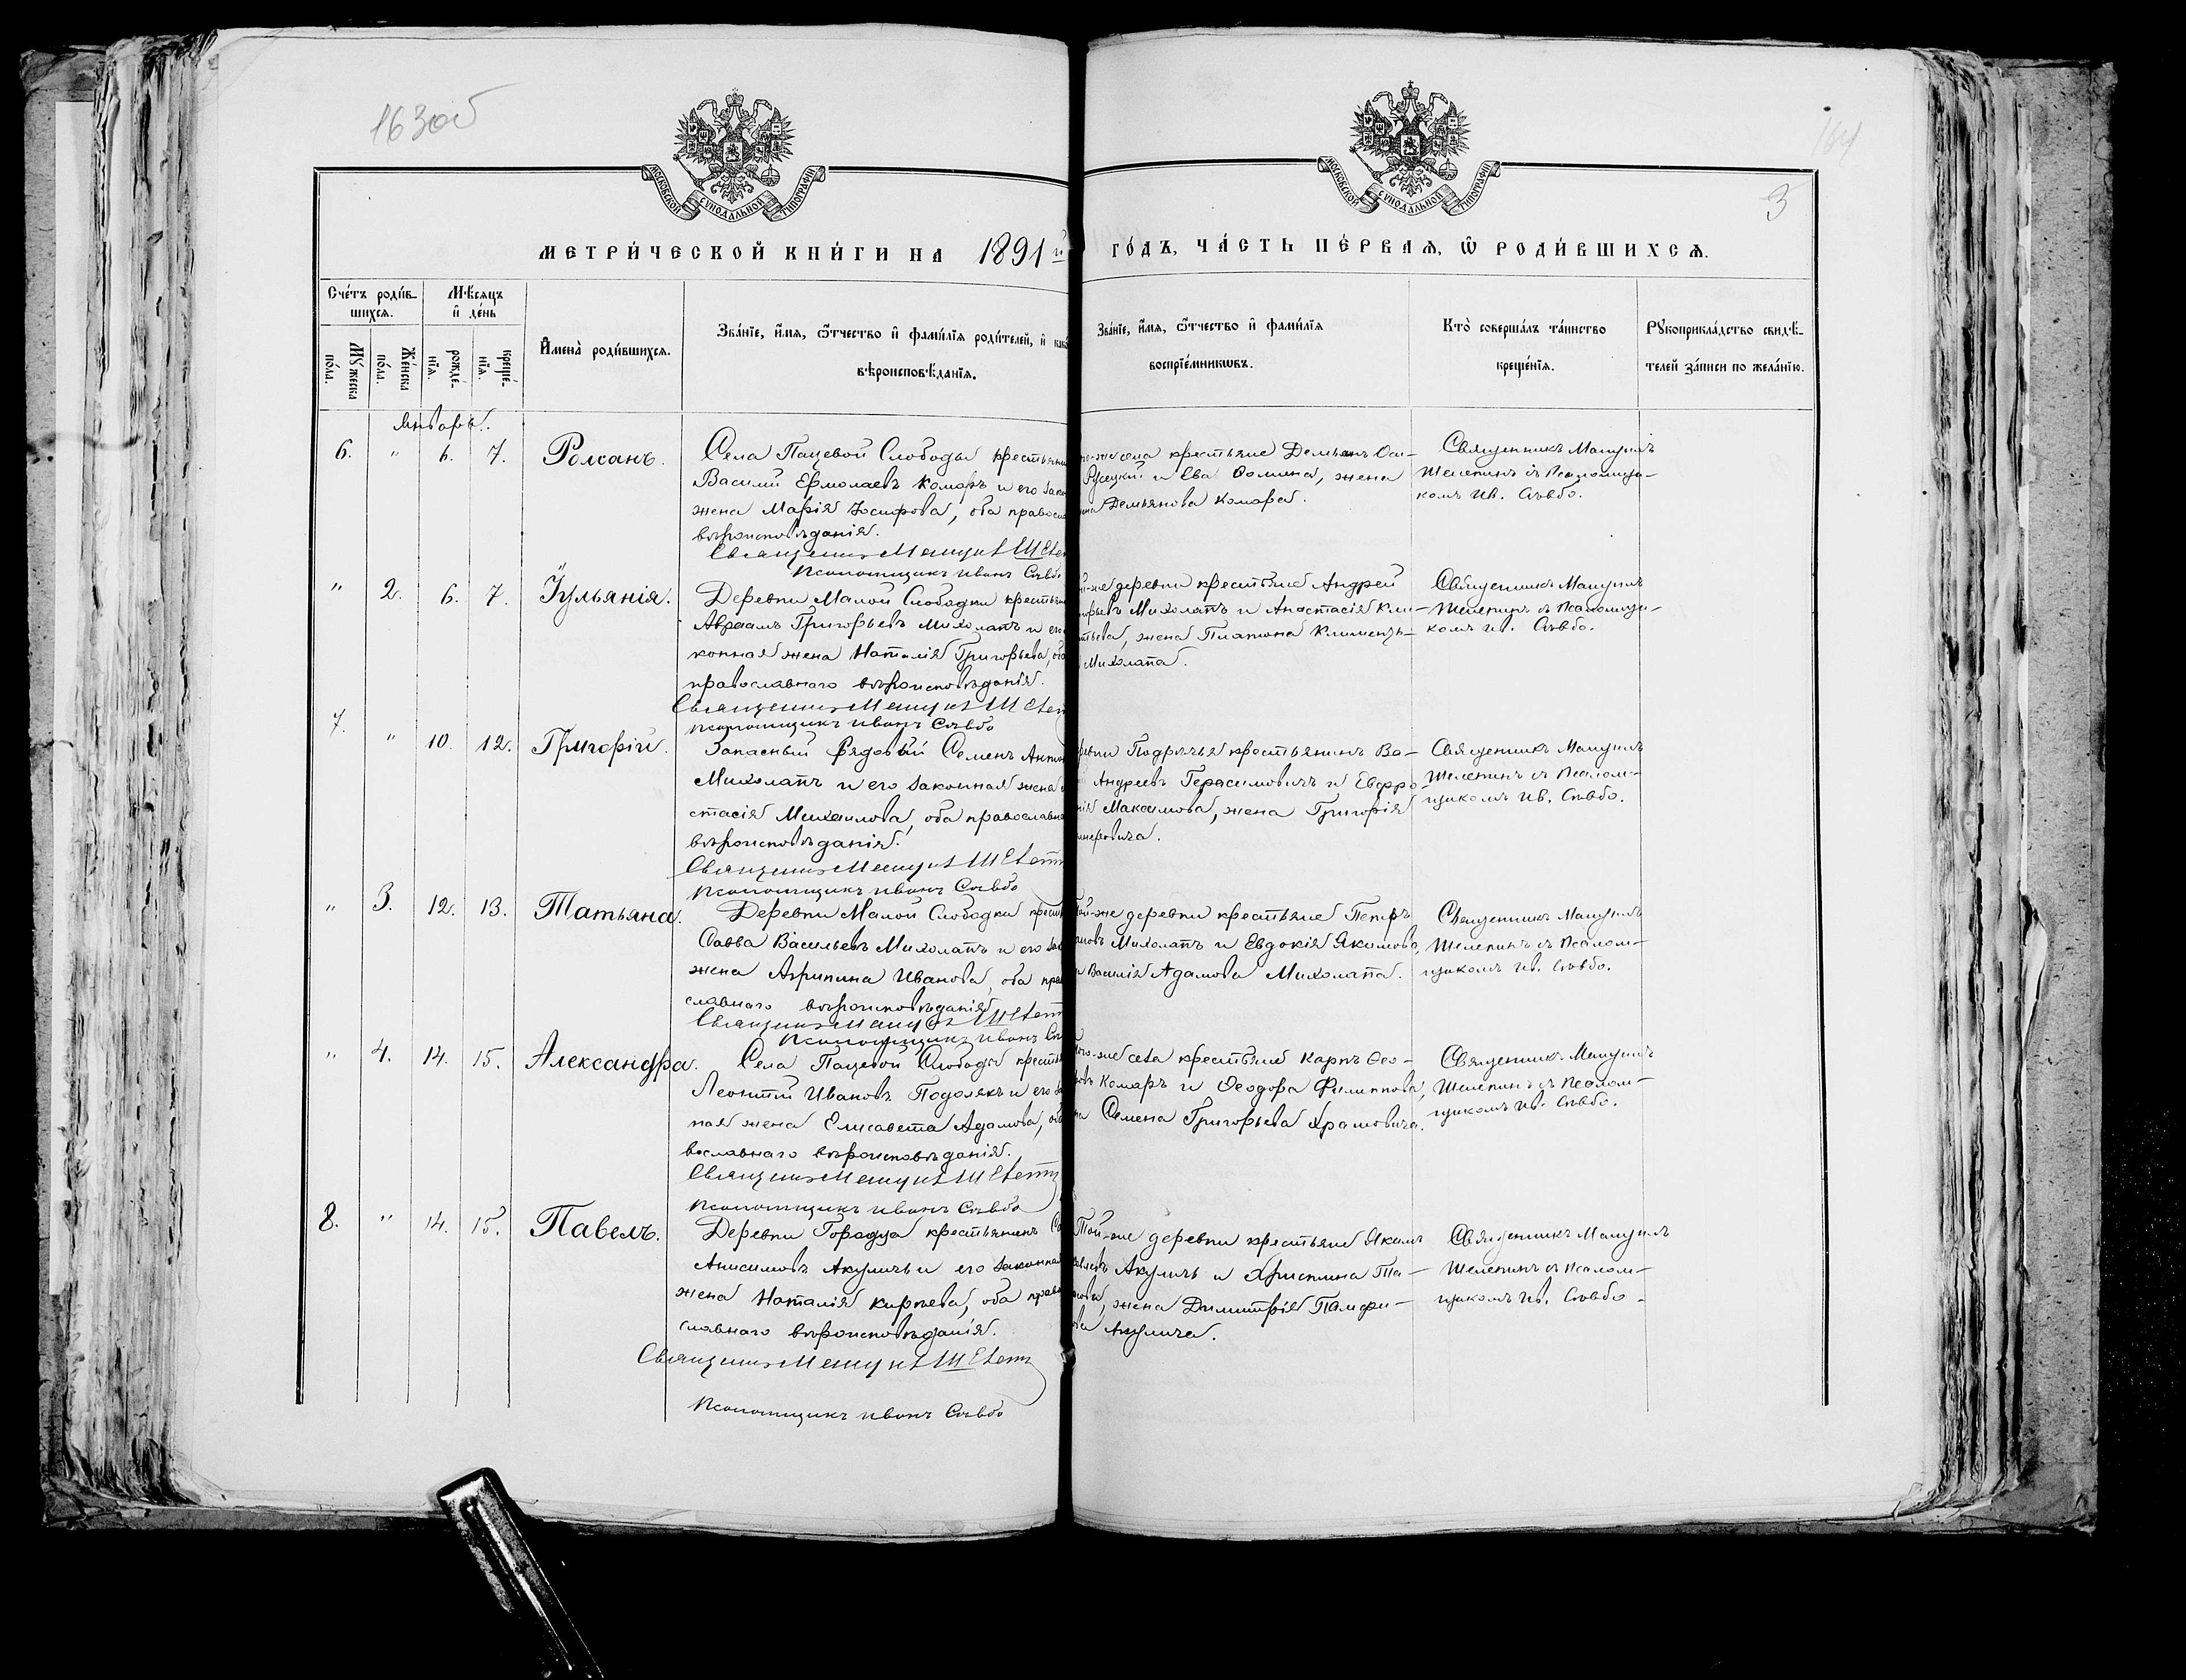 163об
164
3
МОСКОВСКОЙ СѴНОДАЛЬНОЙ ТИПОГРАФІИ
МОСКОВСКОЙ СѴНОДАЛЬНОЙ ТИПОГРАФІИ
МЕТРИ́ЧЕСКОЙ КНИ́ГИ НА 1891 й
ГО́ДЪ, ЧА́СТЬ ПЕ́РВАѦ, Ѡ҆ РОДИ́ВШИХСѦ.
Сче́тъ роди́в-
шихсѧ.
Мꙋ́жеска по́ла.
Же́нска по́ла.
Мѣ́сяцъ
и҆ де́нь
рожде́-
нїѧ.
креще́-
нїѧ.
И҆мена̀ роди́вшихсѧ.
Зва́нїе, и҆́мѧ, ѻ҆́тчество и҆ фами́лїѧ роди́телей, и҆ како
вѣроисповѣ́данїѧ.
Зва́нїе, и҆́мѧ, ѻ҆́тчество и҆ фами́лїѧ
воспрїе́мникѡвъ.
Кто̀ соверша́лъ та́инство
креще́нїѧ.
Рꙋкоприкла́дство свидѣ́-
телей за́писи по жела́нїю.
Январь.
6. " 6. 7. Романъ.
Села Пацевой Слободы крестьянин
Василій Ермолаевъ Комаръ и его зако
жена Марія Іосифова, оба правосла
вѣроисповѣданія.
Священникъ Мануилъ Шелеп
Псаломщикъ Иванъ Сѣвбо
го-же села крестьяне Демьянъ Оси-
Русецкій и Ева Ѳомина, жена
Демьянова Комара.
Священникъ Мануилъ
Шелепинъ съ Псаломщи-
комъ Ив. Сѣвбо.
" 2. 6. 7. Іульянія.
Деревни Малой Слободки крестьян
Авраамъ Григорьевъ Михолапъ и его
конная жена Наталія Григорьева, оба
православнаго вѣроисповѣданія.
Священникъ Мануилъ Шелеп
Псаломщикъ Иванъ Сѣвбо
й-же деревни крестьяне Андрей
горьевъ Михолапъ и Анастасія Кли-
тьева, жена Платона Клименть-
Михолапа.
Священникъ Мануилъ
Шелепинъ съ Псаломщи-
комъ Ив. Сѣвбо.
7. " 10. 12. Григорій.
Запасный Рядовый Семенъ Антон
Михолапъ и его законная жена
стасія Михаилова, оба православна
вѣроисповѣданія.
Священникъ Мануилъ Шелеп
Псаломщикъ Иванъ Сѣвбо
ревни Подречья крестьянинъ Ва-
Андреевъ Герасимовичъ и Евфро-
нія Максимова, жена Григорія
Священникъ Мануилъ
Шелепинъ съ Псалом-
щикомъ Ив. Сѣвбо.
" 3. 12. 13. Татьяна.
Деревни Малой Слободки крест
Савва Васильевъ Михолапъ и его зак
жена Агрипина Иванова, оба пра
славнаго вѣроисповѣданія
Священникъ Мануилъ Шелеп
Псаломщикъ Иванъ Сѣ
Той-же деревни крестьяне Петръ
ановъ Михолапъ и Евдокія Якимова,
Василія Адамова Михолапа.
Священникъ Мануилъ
Шелепинъ съ Псалом-
щикомъ Ив. Сѣвбо.
" 4. 14. 15. Александра.
Села Пацевой Слободы крестья
Леонтій Ивановъ Подолякъ и его за
ная жена Елисавета Адамова, оба
вославнаго вѣроисповѣданія.
Священникъ Мануилъ Шелеп
Псаломщикъ Иванъ Сѣвбо
того-же села крестьяне Карпъ Ѳео-
ровъ Комаръ и Ѳеодора Филиппова,
на Семена Григорьева Храмовича.
Священникъ Мануилъ
Шелепинъ съ Псалом-
щикомъ Ив. Сѣвбо.
8. " 14. 15. Павелъ.
Деревни Городца крестьянинъ
Анисимовъ Акуличъ и его законная
жена Наталія Карпьева, оба право
славнаго вѣроисповѣданія.
Священникъ Мануилъ Шелеп
Псаломщикъ Иванъ Сѣвбо
Той-же деревни крестьяне Якимъ
Акуличъ и Христина Па-
жена Димитрія Памфи-
ва Акулича.
Священникъ Мануилъ
Шелепинъ съ Псалом-
щикомъ Ив. Сѣвбо.